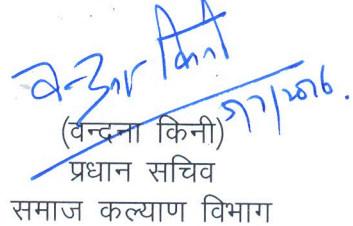 वन्दना किनी
(वन्दना किनी)
प्रधान सचिव
समाज कल्याण विभाग